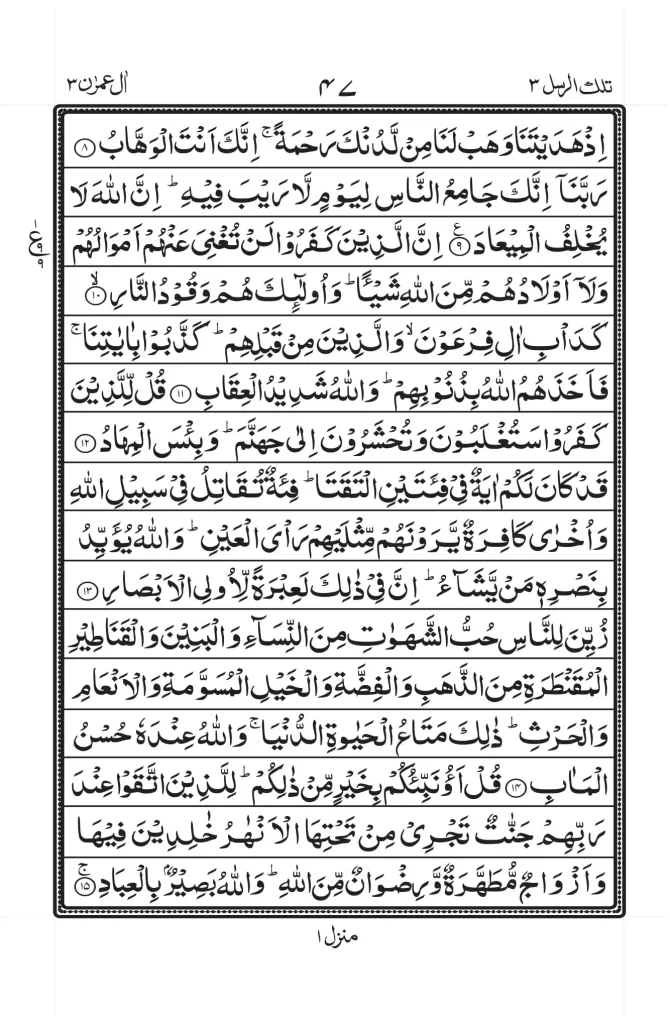 تلك الرسل ٣
٤٧
اٰل عمرٰن ٣
اِذْ هَدَيْتَنَا وَهَبْ لَنَا مِنْ لَّدُنْكَ رَحْمَةً ۚ اِنَّكَ اَنْتَ الْوَهَّابُ ﴿۸﴾
رَبَّنَاۤ اِنَّكَ جَامِعُ النَّاسِ لِيَوْمٍ لَّا رَيْبَ فِيْهِ ؕ اِنَّ اللّٰهَ لَا
يُخْلِفُ الْمِيْعَادَ ﴿۹﴾ اِنَّ الَّذِيْنَ كَفَرُوْا لَنْ تُغْنِيَ عَنْهُمْ اَمْوَالُهُمْ
ع
۹
۹
وَلَاۤ اَوْلَادُهُمْ مِّنَ اللّٰهِ شَيْـًٔا ؕ وَاُولٰٓئِكَ هُمْ وَقُوْدُ النَّارِ ۙ﴿۱۰﴾
كَدَاْبِ اٰلِ فِرْعَوْنَ ۙ وَالَّذِيْنَ مِنْ قَبْلِهِمْ ؕ كَذَّبُوْا بِاٰيٰتِنَا ۚ
فَاَخَذَهُمُ اللّٰهُ بِذُنُوْبِهِمْ ؕ وَاللّٰهُ شَدِيْدُ الْعِقَابِ ﴿۱۱﴾ قُلْ لِّلَّذِيْنَ
كَفَرُوْا سَتُغْلَبُوْنَ وَتُحْشَرُوْنَ اِلٰى جَهَنَّمَ ؕ وَبِئْسَ الْمِهَادُ ﴿۱۲﴾
قَدْ كَانَ لَكُمْ اٰيَةٌ فِيْ فِئَتَيْنِ الْتَقَتَا ؕ فِئَةٌ تُقَاتِلُ فِيْ سَبِيْلِ اللّٰهِ
وَاُخْرٰى كَافِرَةٌ يَّرَوْنَهُمْ مِّثْلَيْهِمْ رَاْيَ الْعَيْنِ ؕ وَاللّٰهُ يُؤَيِّدُ
بِنَصْرِهٖ مَنْ يَّشَآءُ ؕ اِنَّ فِيْ ذٰلِكَ لَعِبْرَةً لِّاُولِي الْاَبْصَارِ ﴿۱۳﴾
زُيِّنَ لِلنَّاسِ حُبُّ الشَّهَوٰتِ مِنَ النِّسَآءِ وَالْبَنِيْنَ وَالْقَنَاطِيْرِ
الْمُقَنْطَرَةِ مِنَ الذَّهَبِ وَالْفِضَّةِ وَالْخَيْلِ الْمُسَوَّمَةِ وَالْاَنْعَامِ
وَالْحَرْثِ ؕ ذٰلِكَ مَتَاعُ الْحَيٰوةِ الدُّنْيَا ۚ وَاللّٰهُ عِنْدَهٗ حُسْنُ
الْمَاٰبِ ﴿۱۴﴾ قُلْ اَؤُنَبِّئُكُمْ بِخَيْرٍ مِّنْ ذٰلِكُمْ ؕ لِلَّذِيْنَ اتَّقَوْا عِنْدَ
رَبِّهِمْ جَنّٰتٌ تَجْرِيْ مِنْ تَحْتِهَا الْاَنْهٰرُ خٰلِدِيْنَ فِيْهَا
وَاَزْوَاجٌ مُّطَهَّرَةٌ وَّرِضْوَانٌ مِّنَ اللّٰهِ ؕ وَاللّٰهُ بَصِيْرٌۢ بِالْعِبَادِ ۚ﴿۱۵﴾
منزل ١